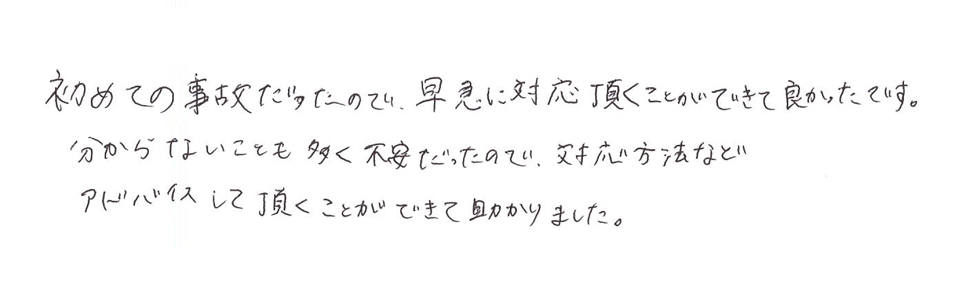 初めての事故だったので、早急に対応頂くことができて良かったです。
分からないことも多く不安だったので、対応方法など
アドバイスして頂くことができて助かりました。